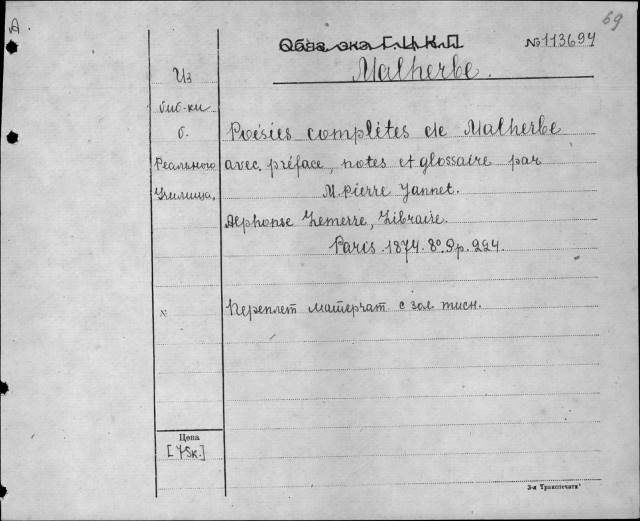 А.
69
Обяз. экз. Г.Ц.К.П
№113697
Malherbe.
Из
биб-ки
б.
Реального
Училища.
Poésies complètes de Malherbe
avec. préface, notes et glossaire par
M. Pierre Jannet.
Alphonse Lemerre, Libraire.
Paris. 1874. 8º. p. 224.
x
Переплет матерчат с зол. тисн.
Цена
[75к.]
3-я Транспечать